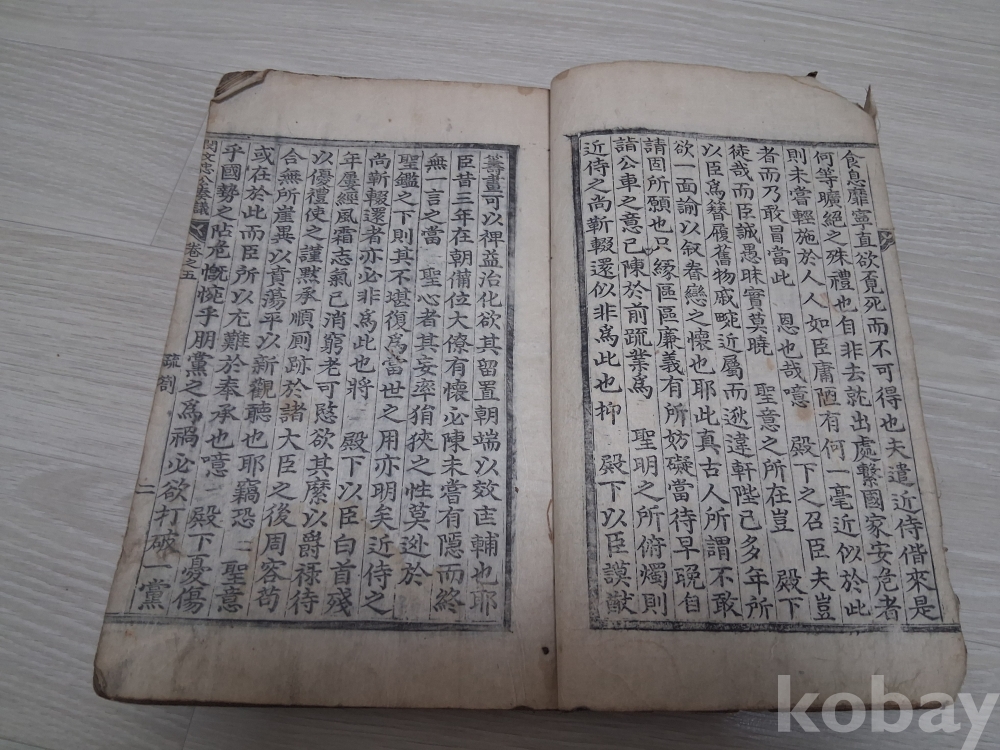 食息靡寧直欲覓死而不可得也夫遣近侍偕來是
何等曠絕之殊禮也自非去就出處繫國家安危者
則未嘗輕施於人人如臣庸陋有何一毫近似於此
者而乃敢冒當此 恩也哉噫 殿下之召臣夫豈
徒哉而臣誠愚昧實莫曉 聖意之所在豈 殿下
以臣爲簪履舊物戚畹近屬而逖違軒陛已多年所
欲一面諭以叙眷戀之懷也耶此真古人所謂不敢
請固所願也只緣區區廉義有所妨礙當待早晚自
詣公車之意已陳於前疏業爲 聖明之所俯燭則
近侍之尚靳輟還似非爲此也抑 殿下以臣謨猷
籌畫可以裨益治化欲其留置朝端以效匡輔也耶
臣昔三年在朝備位大僚有懷必陳未嘗有隱而終
無一言之當 聖心者其妄率狷狹之性莫逃於
聖鑑之下則其不堪復爲當世之用亦明矣近侍之
尚靳輟還者亦必非爲此也將 殿下以臣白首殘
年屢經風霜志氣已消窮老可愍欲其縻以爵祿待
以優禮使之謹默承順厠跡於諸大臣之後周容苟
合無所崖異以賁蕩平以新觀聽也耶竊恐 聖意
或在於此而臣所以尤難於奉承也噫 殿下憂傷
乎國勢之阽危慨惋乎朋黨之爲禍必欲打破一黨
文忠公奏議 卷之五 疏劄 二
kobay